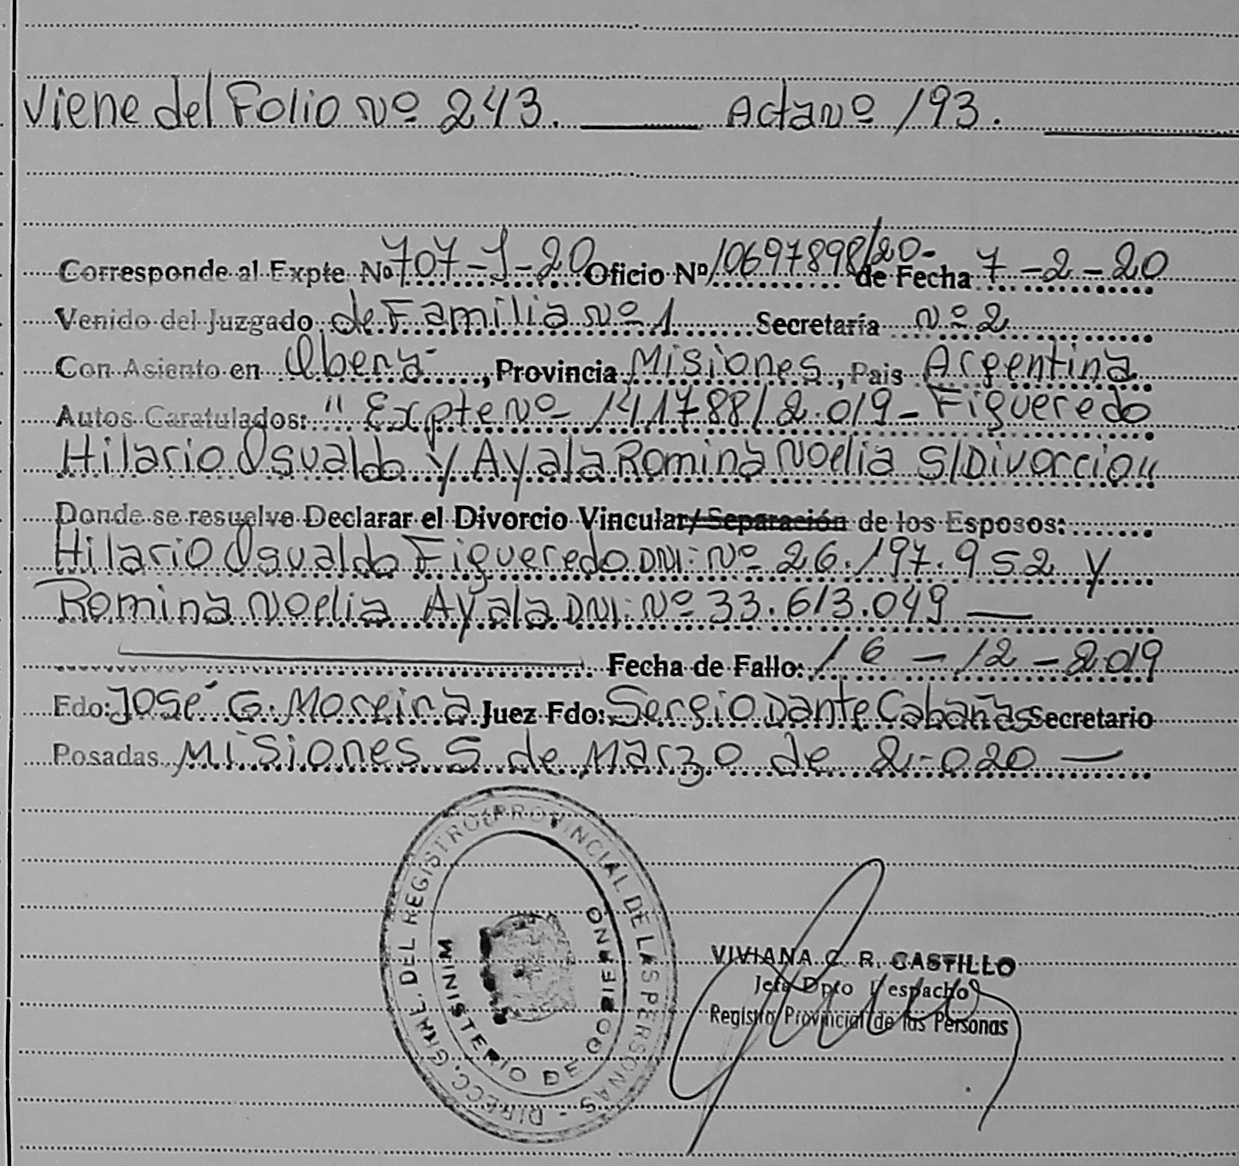 Viene del Folio Nº 243. Acta Nº 193.
Corresponde al Expte. Nº 707-J-20 Oficio Nº 10697898/20- de Fecha 7-2-20
Venido del Juzgado de Familia Nº 1 Secretaría Nº 2
Con Asiento en Oberá, Provincia Misiones, Pais Argentina
Autos Caratulados: "Expte Nº 141788/2.019- Figueredo
Hilario Osvaldo y Ayala Romina Noelia S/Divorcio"
Donde se resuelve Declarar el Divorcio Vincular/Separación de los Esposos:
Hilario Osvaldo Figueredo DNI: Nº 26.197.952 y
Romina Noelia Ayala DNI: Nº 33.613.049 —
Fecha de Fallo: 16-12-2019
Fdo: José G. Moreira Juez Fdo: Sergio Dante Cabañas Secretario
Posadas, Misiones 5 de Marzo de 2.020 —
DIRECC. GRAL. DEL REGISTRO PROVINCIAL DE LAS PERSONAS -
MINISTERIO DE GOBIERNO
VIVIANA C. R. CASTILLO
Jefa Dpto Despacho
Registro Provincial de las Personas